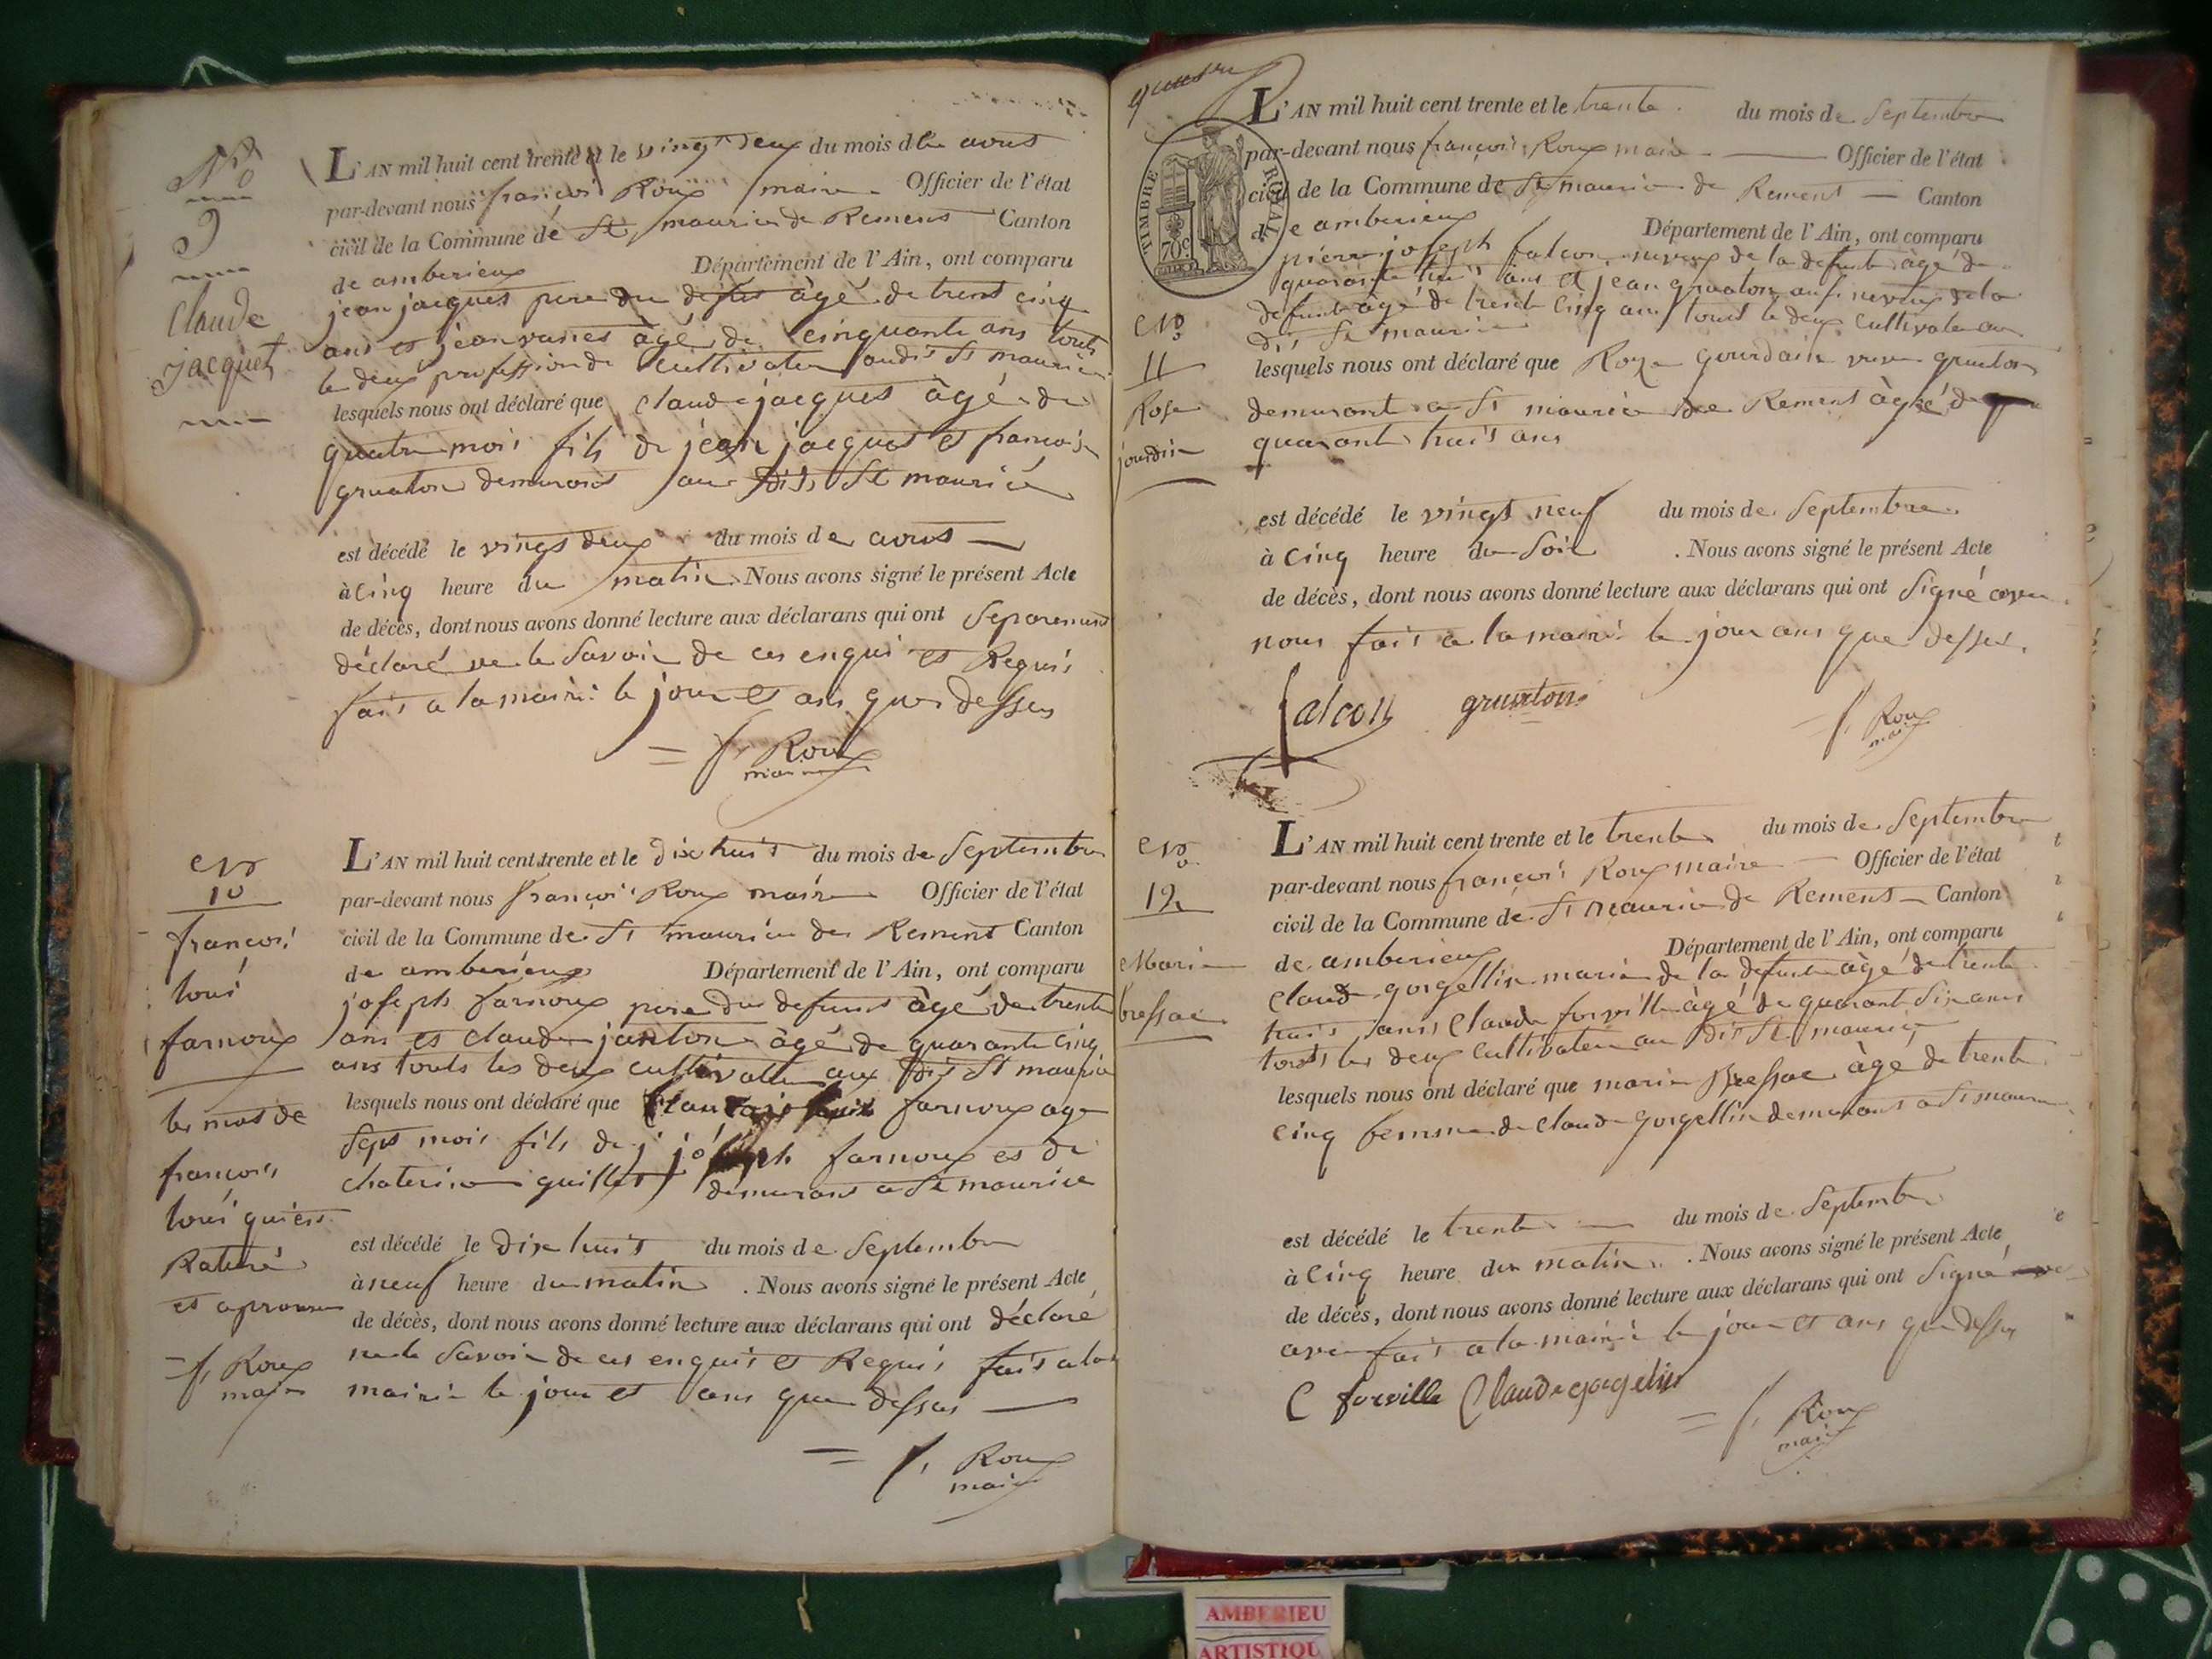 No
9
Claude
jacquet
L'AN mil huit cent trente et le vingt deux du mois d'le aout
par-devant nous françois Roux maire Officier de l'état
civil de la Commune de St maurice de Remens Canton
de amberieux Département de l'Ain, ont comparu
jean jacques pere du defint âgé de trent cinq
ans et jean vasies âgé de cinquante ans touts
le deux profession de cultivateur audis St maurice
lesquels nous ont déclaré que claude jacques âgé de
quatre mois fils de jean jacques et francois
gruaton demurant au dits St maurice
est décédé le vings deux du mois de aous
à cinq heure du matin. Nous avons signé le présent Acte
de décès, dont nous avons donné lecture aux déclarans qui ont separement
déclaré ne le savoir de ces enquis et Requis
fait a la mairi le jour et ans que dessus
= f. Roux
maire
No
10
francois
loui
farnoux
les mos de
francois
loui qui es
Raturé
et aprouver
= f. Roux
maire
L'AN mil huit cent trente et le dix huit du mois de Septembre
par-devant nous françois Roux maire Officier de l'état
civil de la Commune de St maurice de Rement Canton
de amberieux Département de l'Ain, ont comparu
joseph farnoux pere du defunt âgé de trente
ans et claude janton âgé de quarante cinq
ans touts les deux cultivateur aux dit St maurice
lesquels nous ont déclaré que farnoux age
sept mois fils de j joseph farnoux et de
chaterine guillet demurans a St maurice
est décédé le dix huit du mois de Septembre
à neuf heure du matin. Nous avons signé le présent Acte
de décès, dont nous avons donné lecture aux déclarans qui ont déclaré
ne le savoir de ces enquis et Requis fait a la
mairie le jour et ans que dessus
= f. Roux
maire
TIMBRE ROYAL
70c
No
11
Rose
jourdin
L'AN mil huit cent trente et le trente du mois de Septembre
par-devant nous françois Roux maire Officier de l'état
civil de la Commune de St maurice de Rement Canton
de amberieux Département de l'Ain, ont comparu
pierre joseph falcon neveux de la defunte âgé de
quarante huit ans et jean gruaton ausi neveux de la
defunte âgé de trente cinq ans touts le deux cultivateur au
dis St maurice
lesquels nous ont déclaré que Roze gourdain veuve gruaton
demurant a St maurice de Remens âgé de
quarante huit ans
est décédé le vingt neuf du mois de Septembre
à cinq heure du soir. Nous avons signé le présent Acte
de décès, dont nous avons donné lecture aux déclarans qui ont signé avec
nous fait a la mairi le jour ans que dessus.
falcon gruaton
= f. Roux
maire
No
12
Marie
bressac
L'AN mil huit cent trente et le trente du mois de Septembre
par-devant nous françois Roux maire Officier de l'état
civil de la Commune de St maurice de Remens Canton
de amberieux Département de l'Ain, ont comparu
Claude gorgellin marie de la defunte âgé de trente
huit ans Claude forville âgé de quarant six ans
touts les deux cultivateur au dit St maurice
lesquels nous ont déclaré que marie Bressac âgé de trente
cinq femme de claude gorgellin demurans a St maurice
est décédé le trente du mois de Septembre
à cinq heure du matin. Nous avons signé le présent Acte
de décès, dont nous avons donné lecture aux déclarans qui ont signé
avec fait a la mairi le jour et ans que dessus
C forville Claude gorgelin
= f. Roux
maire
AMBERIEU
ARTISTIQU